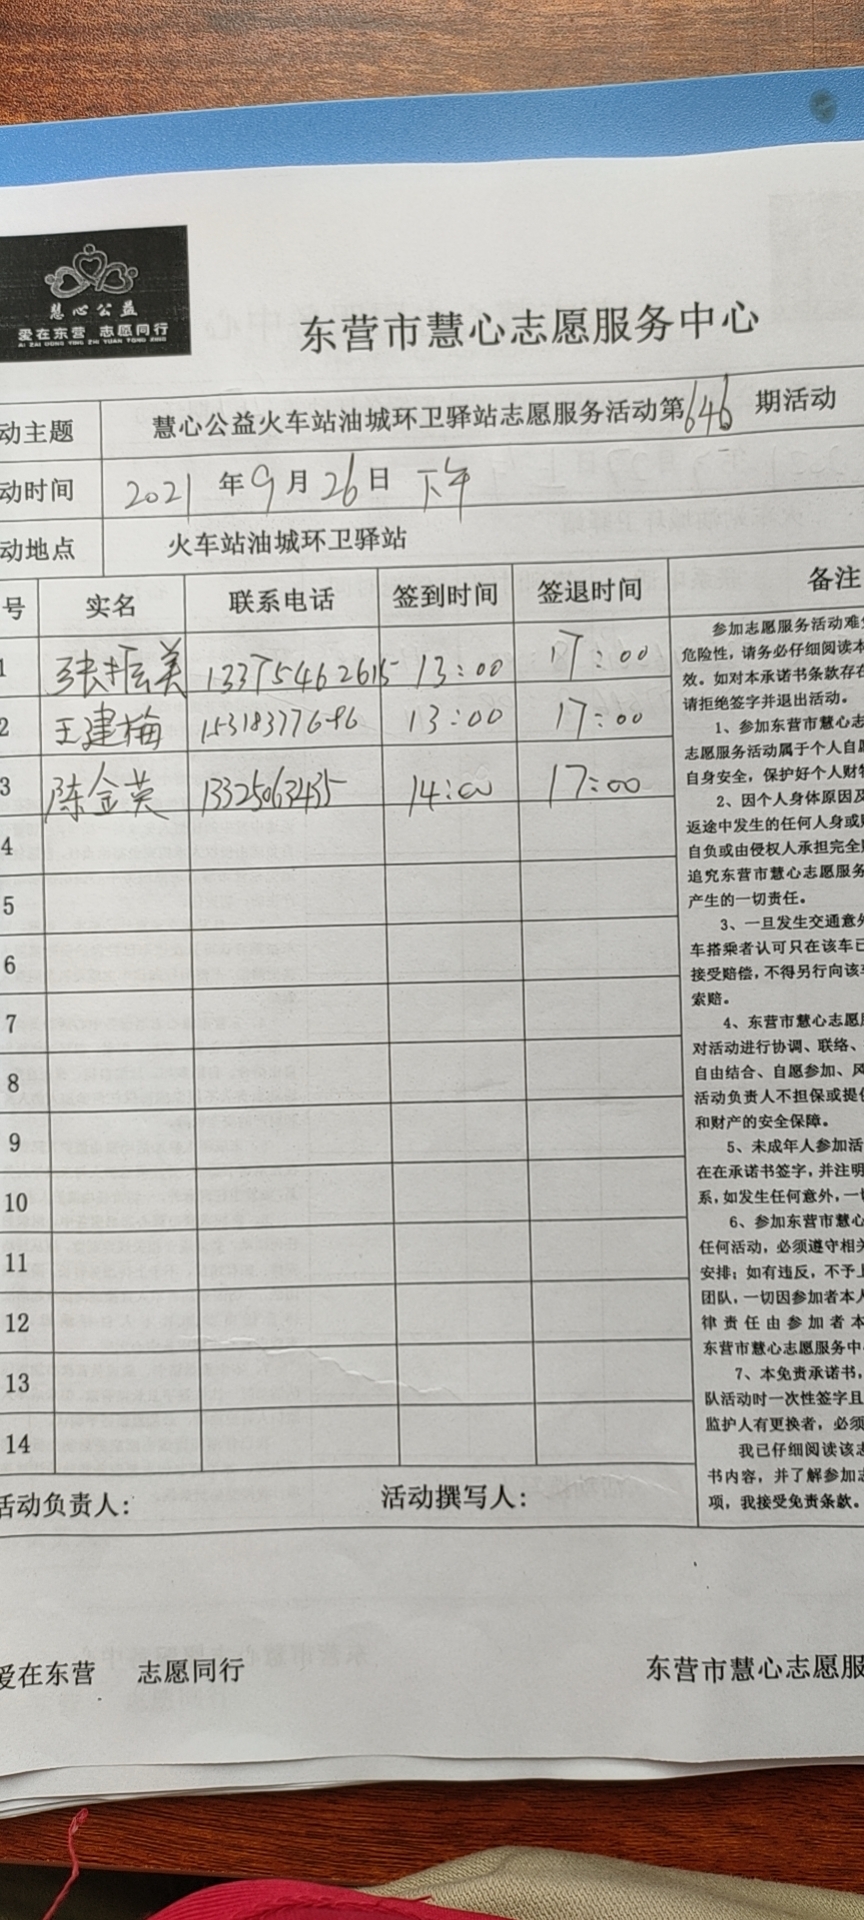 慧心公益
爱在东营 志愿同行
AI ZAI DONG YING ZHI YUAN TONG XING
东营市慧心志愿服务中心
动主题 慧心公益火车站油城环卫驿站志愿服务活动第646期活动
动时间 2021年9月26日 下午
动地点 火车站油城环卫驿站
号 实名 联系电话 签到时间 签退时间 备注
1 张振美 13375462615 13:00 17:00
2 王建梅 15318377696 13:00 17:00
3 陈金英 13325063435 14:00 17:00
4
5
6
7
8
9
10
11
12
13
14
参加志愿服务活动难
危险性，请务必仔细阅读本
效。如对本承诺书条款存在
请拒绝签字并退出活动。
1、参加东营市慧心志
志愿服务活动属于个人自愿
自身安全，保护好个人财
2、因个人身体原因及
返途中发生的任何人身或
自负或由侵权人承担完全
追究东营市慧心志愿服务
产生的一切责任。
3、一旦发生交通意外
车搭乘者认可只在该车已
接受赔偿，不得另行向该车
索赔。
4、东营市慧心志愿
对活动进行协调、联络、
自由结合、自愿参加、风
活动负责人不担保或提供
和财产的安全保障。
5、未成年人参加活
在在承诺书签字，并注明
系，如发生任何意外，一切
6、参加东营市慧心
任何活动，必须遵守相关
安排；如有违反，不予上
团队，一切因参加者本人
律责任由参加者本
东营市慧心志愿服务中
7、本免责承诺书，
队活动时一次性签字且
监护人有更换者，必须
我已仔细阅读该志
书内容，并了解参加志
项，我接受免责条款。
活动负责人： 活动撰写人：
爱在东营 志愿同行 东营市慧心志愿服